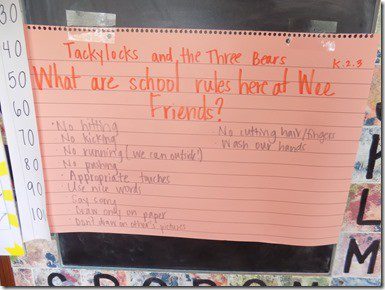 30
40
50
60
70
80
90
10
Tackylocks and the Three Bears
K.2.3
What are school rules here at Wee
Friends?
· No hitting
· No kicking
· No running (we can outside!)
· No pushing
· Appropriate touches
· Use nice words
· Say sorry
· Draw only on paper
· Don't draw on other's pictures
· No cutting hair/fingers
· Wash our hands
L
M